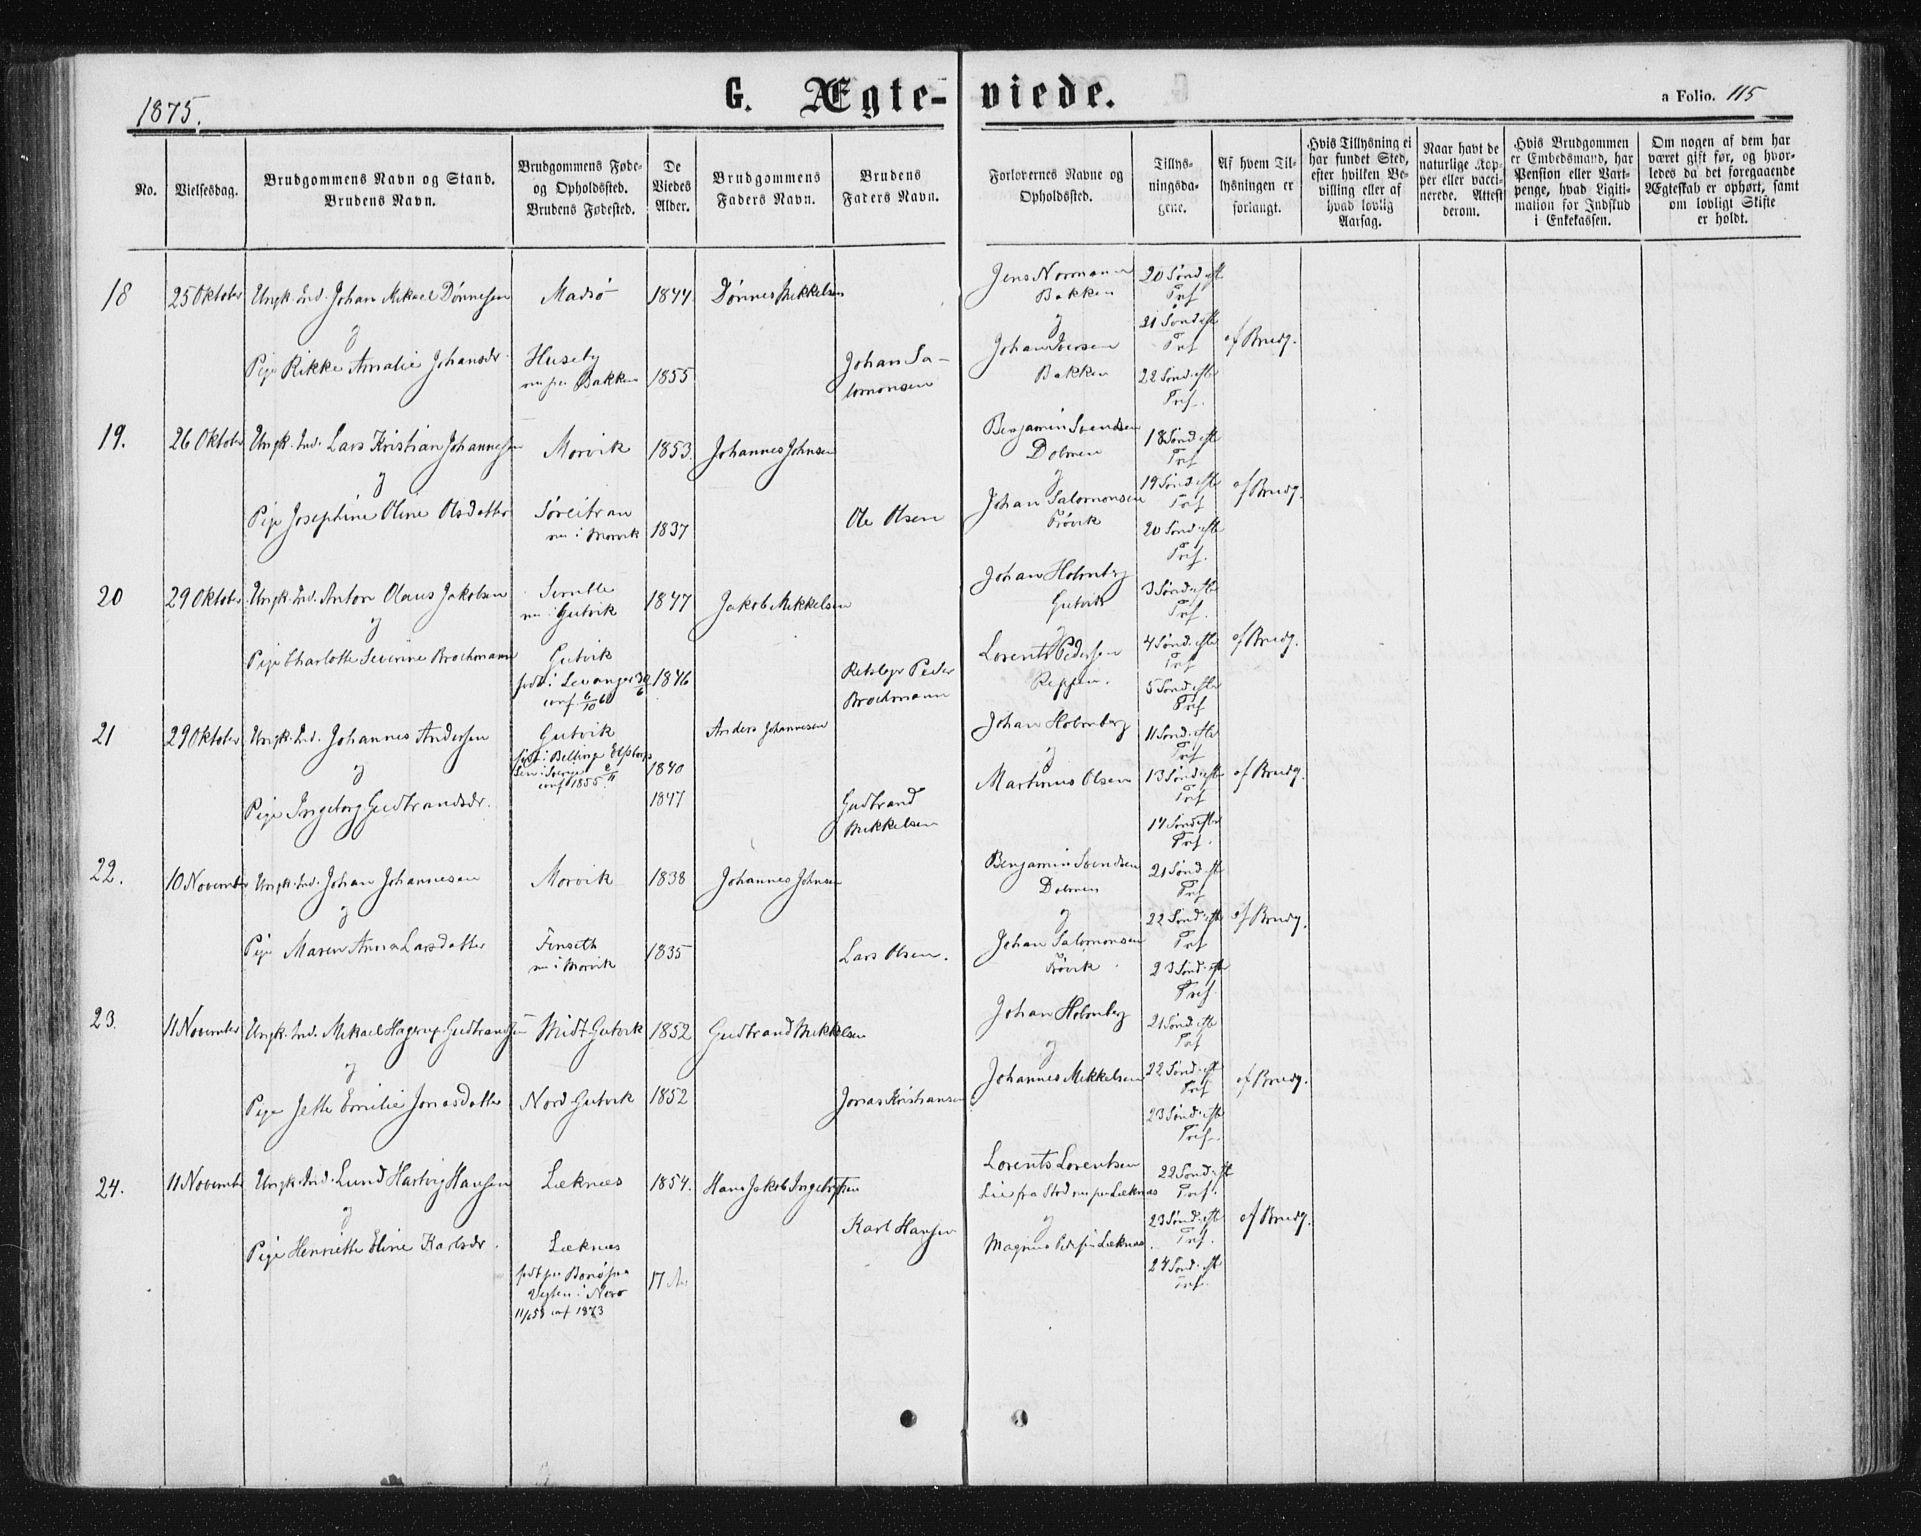 1875.
G. Ægte- viede.
a Folio. 115
No.
Vielsesdag.
Brudgommens Navn og Stand.
Brudens Navn.
Brudgommens Føde-
og Opholdssted.
Brudens Fødested.
De
Viedes
Alder.
Brudgommens
Faders Navn.
Brudens
Faders Navn.
Forlovernes Navne og
Opholdssted.
Tillys-
ningsda-
gene.
Af hvem Til-
lysningen er
forlangt.
Hvis Tillysning ei
har fundet Sted,
efter hvilken Be-
villing eller af
hvad lovlig
Aarsag.
Naar havt de
naturlige Kop-
per eller vacci-
nerede. Attest
derom.
Hvis Brudgommen
er Embedsmand, har
Pension eller Vart-
penge, hvad Ligiti-
mation for Indskud
i Enkekassen.
Om nogen af dem har
været gift før, og hvor-
ledes da det foregaaende
Ægteskab er ophørt, samt
om lovligt Skifte
er holdt.
18 25 Oktober Ungk. Ind. Johan Mikael Dønnesen Madsø 1844. Dønnes Mikkelsen
Jens Normann
Bakken
20 Sønd. eft.
Tref
og
21 Sønd. eft
Tref
af Brudg.
Pige Rikke Amalie Johansdr. Huseby
nu paa Bakken 1855 Johan Sa-
lomonsen
Johan Iversen
Bakken
22 Sønd. efter
Tref.
19. 26 Oktober Ungk. Ind. Lars Kristian Johannessen Morvik 1853. Johannes Johnsen
Benjamin Svendsen
Dolmen
18 Sønd. efter
Tref
og
19 Sønd. efter
Tref
af Brudg.
Pige Josephine Oline Olsdatter
nu i Morvik 1837 Ole Olsen
Johan Salomonsen
20 Sønd. efter
Tref.
20 29 Oktober Ungk. Ind. Anton Olaus Jakobsen
nu i Gutvik 1847 Jakob Mikkelsen
Johan Holmberg
Gutvik
3 Sønd. efter
Tref.
og
4 Sønd. efter
Tref
af Brudg.
Pige Charlotte Severine Brochmann Gutvik
født i Levanger 30/6
conf 6/10 60 1846 Peder
Brochmann
Lorents Pedersen
Reppen.
5 Sønd. efter
Tref
21 29 Oktober Ungk. Ind. Johannes Andersen Gutvik
conf 1855 1840 Anders Johannesen
Johan Holmberg
11 Sønd. efter
Tref
og
13 Sønd. efter
Tref
af Brudg.
Pige Ingeborg Gudbrandsdr. 1847 Gudbrand
Mikkelsen
Martinus Olsen
14 Sønd. efter
Tref.
22. 10 November Ungk. Ind. Johan Johannesen Morvik 1838 Johannes Johnsen
Benjamin Svendsen
Dolmen
21 Sønd. eft
Tref
og
22 Sønd. efter
Tref
af Brudg.
Pige Maren Anna Larsdatter Finseth
nu i Morvik 1835 Lars Olsen.
Johan Salomonsen
23 Sønd. efter
Tref.
23. 11 November Ungk. Ind. Mikael Hagerup Gudbrandsen Midt Gutvik 1852 Gudbrand Mikkelsen
Johan Holmberg
21 Sønd. efter
Tref
og
22 Sønd. efter
Tref
af Brudg.
Pige Jette Emilie Jonasdatter Nord Gutvik 1852 Jonas Kristiansen
Johannes Mikkelsen
23 Sønd. efter
Tref.
24. 11 November Ungk. Ind. Lund Hartvig Hansen Læknes 1854. Hans Jakob Ingebrigtsen
Lorents Lorentsen
Lie fra Stod nu paa Læknes
22 Sønd. eft
Tref.
og
23 Sønd. efter
Tref.
af Brudg.
Pige Henriette Eline Karlsdr. Læknes
11/6 58 conf 1873 17 Aar Karl Hansen
Magnus Pedersen Læknes.
24 Sønd. eft
Tref.